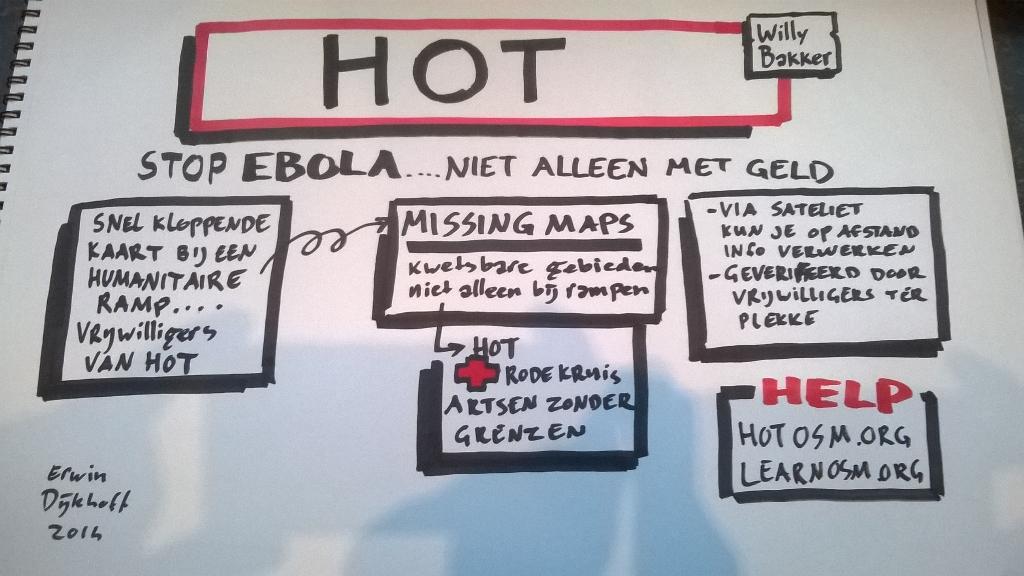 HOT
Willy
Bakker
STOP EBOLA....NIET ALLEEN MET GELD
SNEL KLOPPENDE
KAART BIJ EEN
HUMANITAIRE
RAMP....
Vrijwilligers
VAN HOT
MISSING MAPS
kwetsbare gebieden
niet alleen bij rampen
HOT
RODE KRUIS
ARTSEN ZONDER
GRENZEN
-VIA SATELIET
KUN JE OP AFSTAND
INFO VERWERKEN
-GEVERIFEERD DOOR
VRIJWILLIGERS TER
PLEKKE
HELP
HOTOSM.ORG
LEARNOSM.ORG
Erwin
Dijkhoff
2014